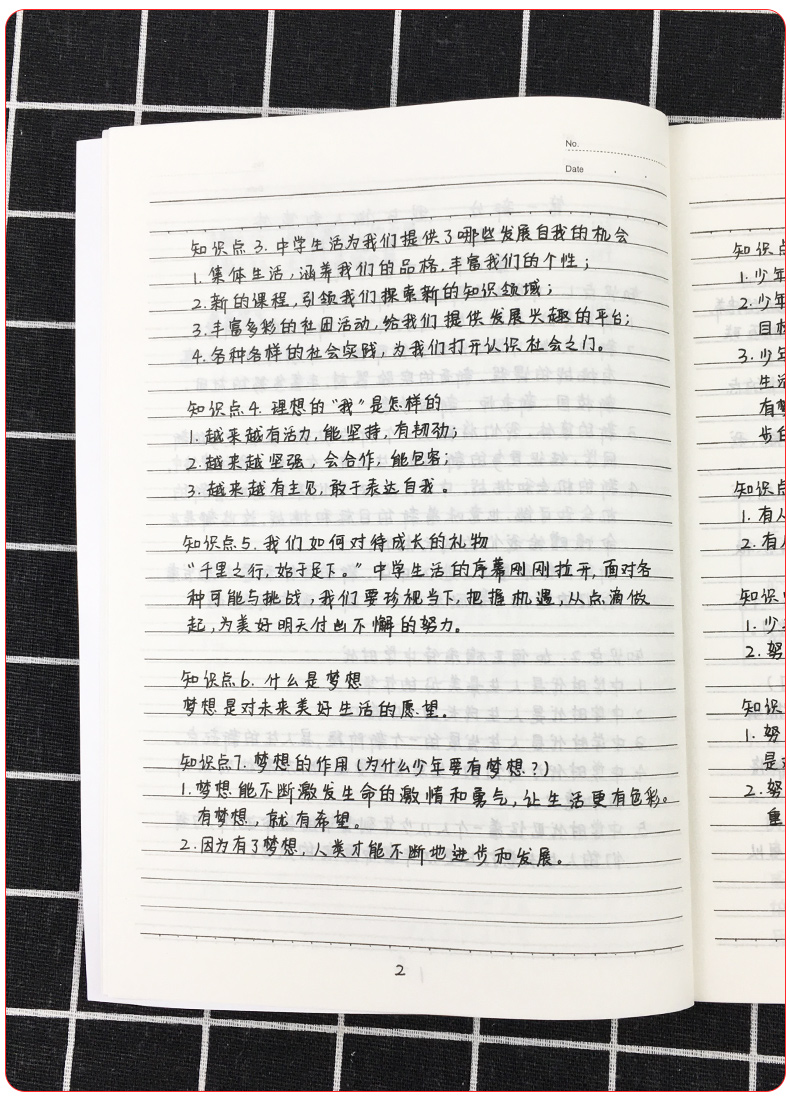 No.
Date
知识点3.中学生活为我们提供了哪些发展自我的机会
1.集体生活,涵养我们的品格,丰富我们的个性;
2.新的课程,引领我们探索新的知识领域;
3.丰富多彩的社团活动,给我们提供发展兴趣的平台;
4.各种各样的社会实践,为我们打开认识社会之门。
知识点4.理想的“我”是怎样的
1.越来越有活力,能坚持,有韧劲;
2.越来越坚强,会合作,能包容;
3.越来越有主见,敢于表达自我。
知识点5.我们如何对待成长的礼物
“千里之行,始于足下。”中学生活的序幕刚刚拉开,面对各
种可能与挑战,我们要珍视当下,把握机遇,从点滴做
起,为美好明天付出不懈的努力。
知识点6.什么是梦想
梦想是对未来美好生活的愿望。
知识点7.梦想的作用(为什么少年要有梦想?)
1.梦想能不断激发生命的激情和勇气,让生活更有色彩。
有梦想,就有希望。
2.因为有了梦想,人类才能不断地进步和发展。
2
知识点
1.少年
2.少年
目标
3.少年
生活
有梦
步自
知识点
1.有人
2.有人
知识
1.少
2.努
知识
1.努
是
2.努
重